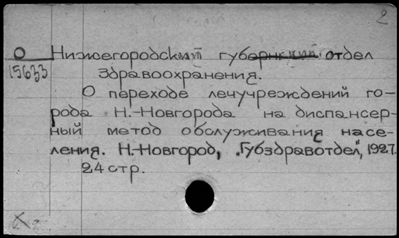 2
О Нижегородский губернский отдел
15633 Здравоохранения.
О переходе лечучреждений го-
рода Н.-Новгорода на диспансер-
ный метод обслуживания насе-
ления. Н.-Новгород, "Губздравотдел", 1927.
24 стр.